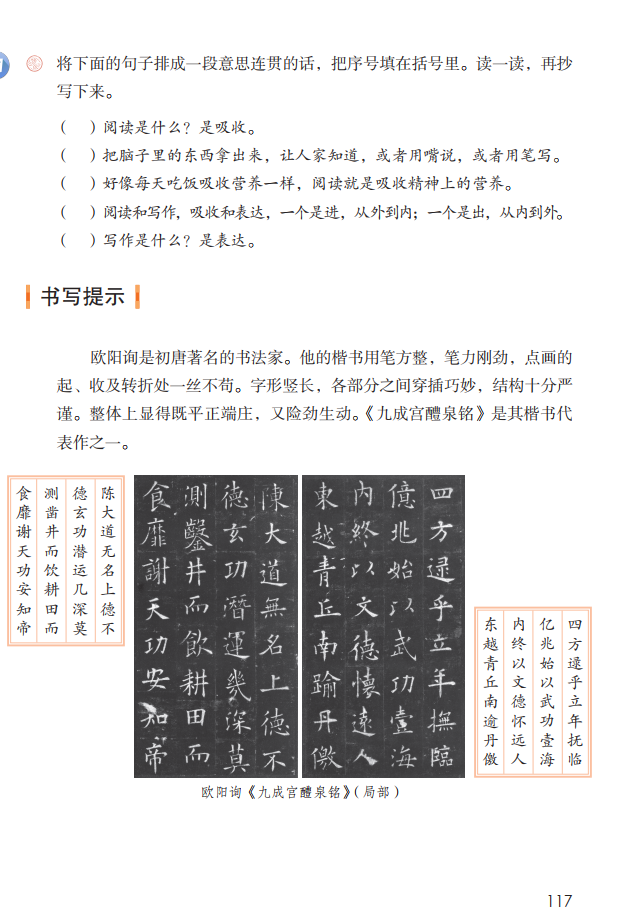 将下面的句子排成一段意思连贯的话，把序号填在括号里。读一读，再抄
写下来。
（　）阅读是什么？是吸收。
（　）把脑子里的东西拿出来，让人家知道，或者用嘴说，或者用笔写。
（　）好像每天吃饭吸收营养一样，阅读就是吸收精神上的营养。
（　）阅读和写作，吸收和表达，一个是进，从外到内；一个是出，从内到外。
（　）写作是什么？是表达。
书写提示
欧阳询是初唐著名的书法家。他的楷书用笔方整，笔力刚劲，点画的
起、收及转折处一丝不苟。字形竖长，各部分之间穿插巧妙，结构十分严
谨。整体上显得既平正端庄，又险劲生动。《九成宫醴泉铭》是其楷书代
表作之一。
陈大道无名上德不
德玄功潜运几深莫
测凿井而饮耕田而
食靡谢天功安知帝
陳大道無名上德不
德玄功潛運幾深莫
測鑿井而飲耕田而
食靡謝天功安知帝
四方逯乎立年撫臨
億兆始以武功壹海
内終以文德懷遠人
東越青丘南踰丹儌
四方逯乎立年抚临
亿兆始以武功壹海
内终以文德怀远人
东越青丘南逾丹徼
欧阳询《九成宫醴泉铭》（局部）
117